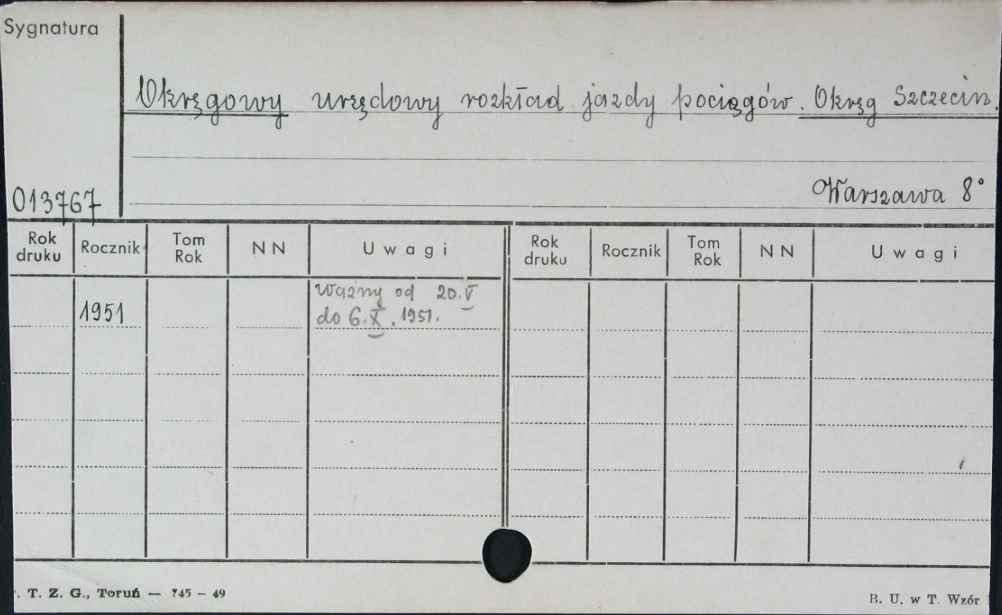 Sygnatura
Okręgowy urzędowy rozkład jazdy pociągów. Okręg Szczecin.
013767
Warszawa 8°
Rok druku Rocznik Tom Rok N N U w a g i Rok druku Rocznik Tom Rok N N U w a g i
1951 Ważny od 20.V
do 6.X.1951.
T. Z. G., Toruń — 745 - 49
B. U. w T. Wzór